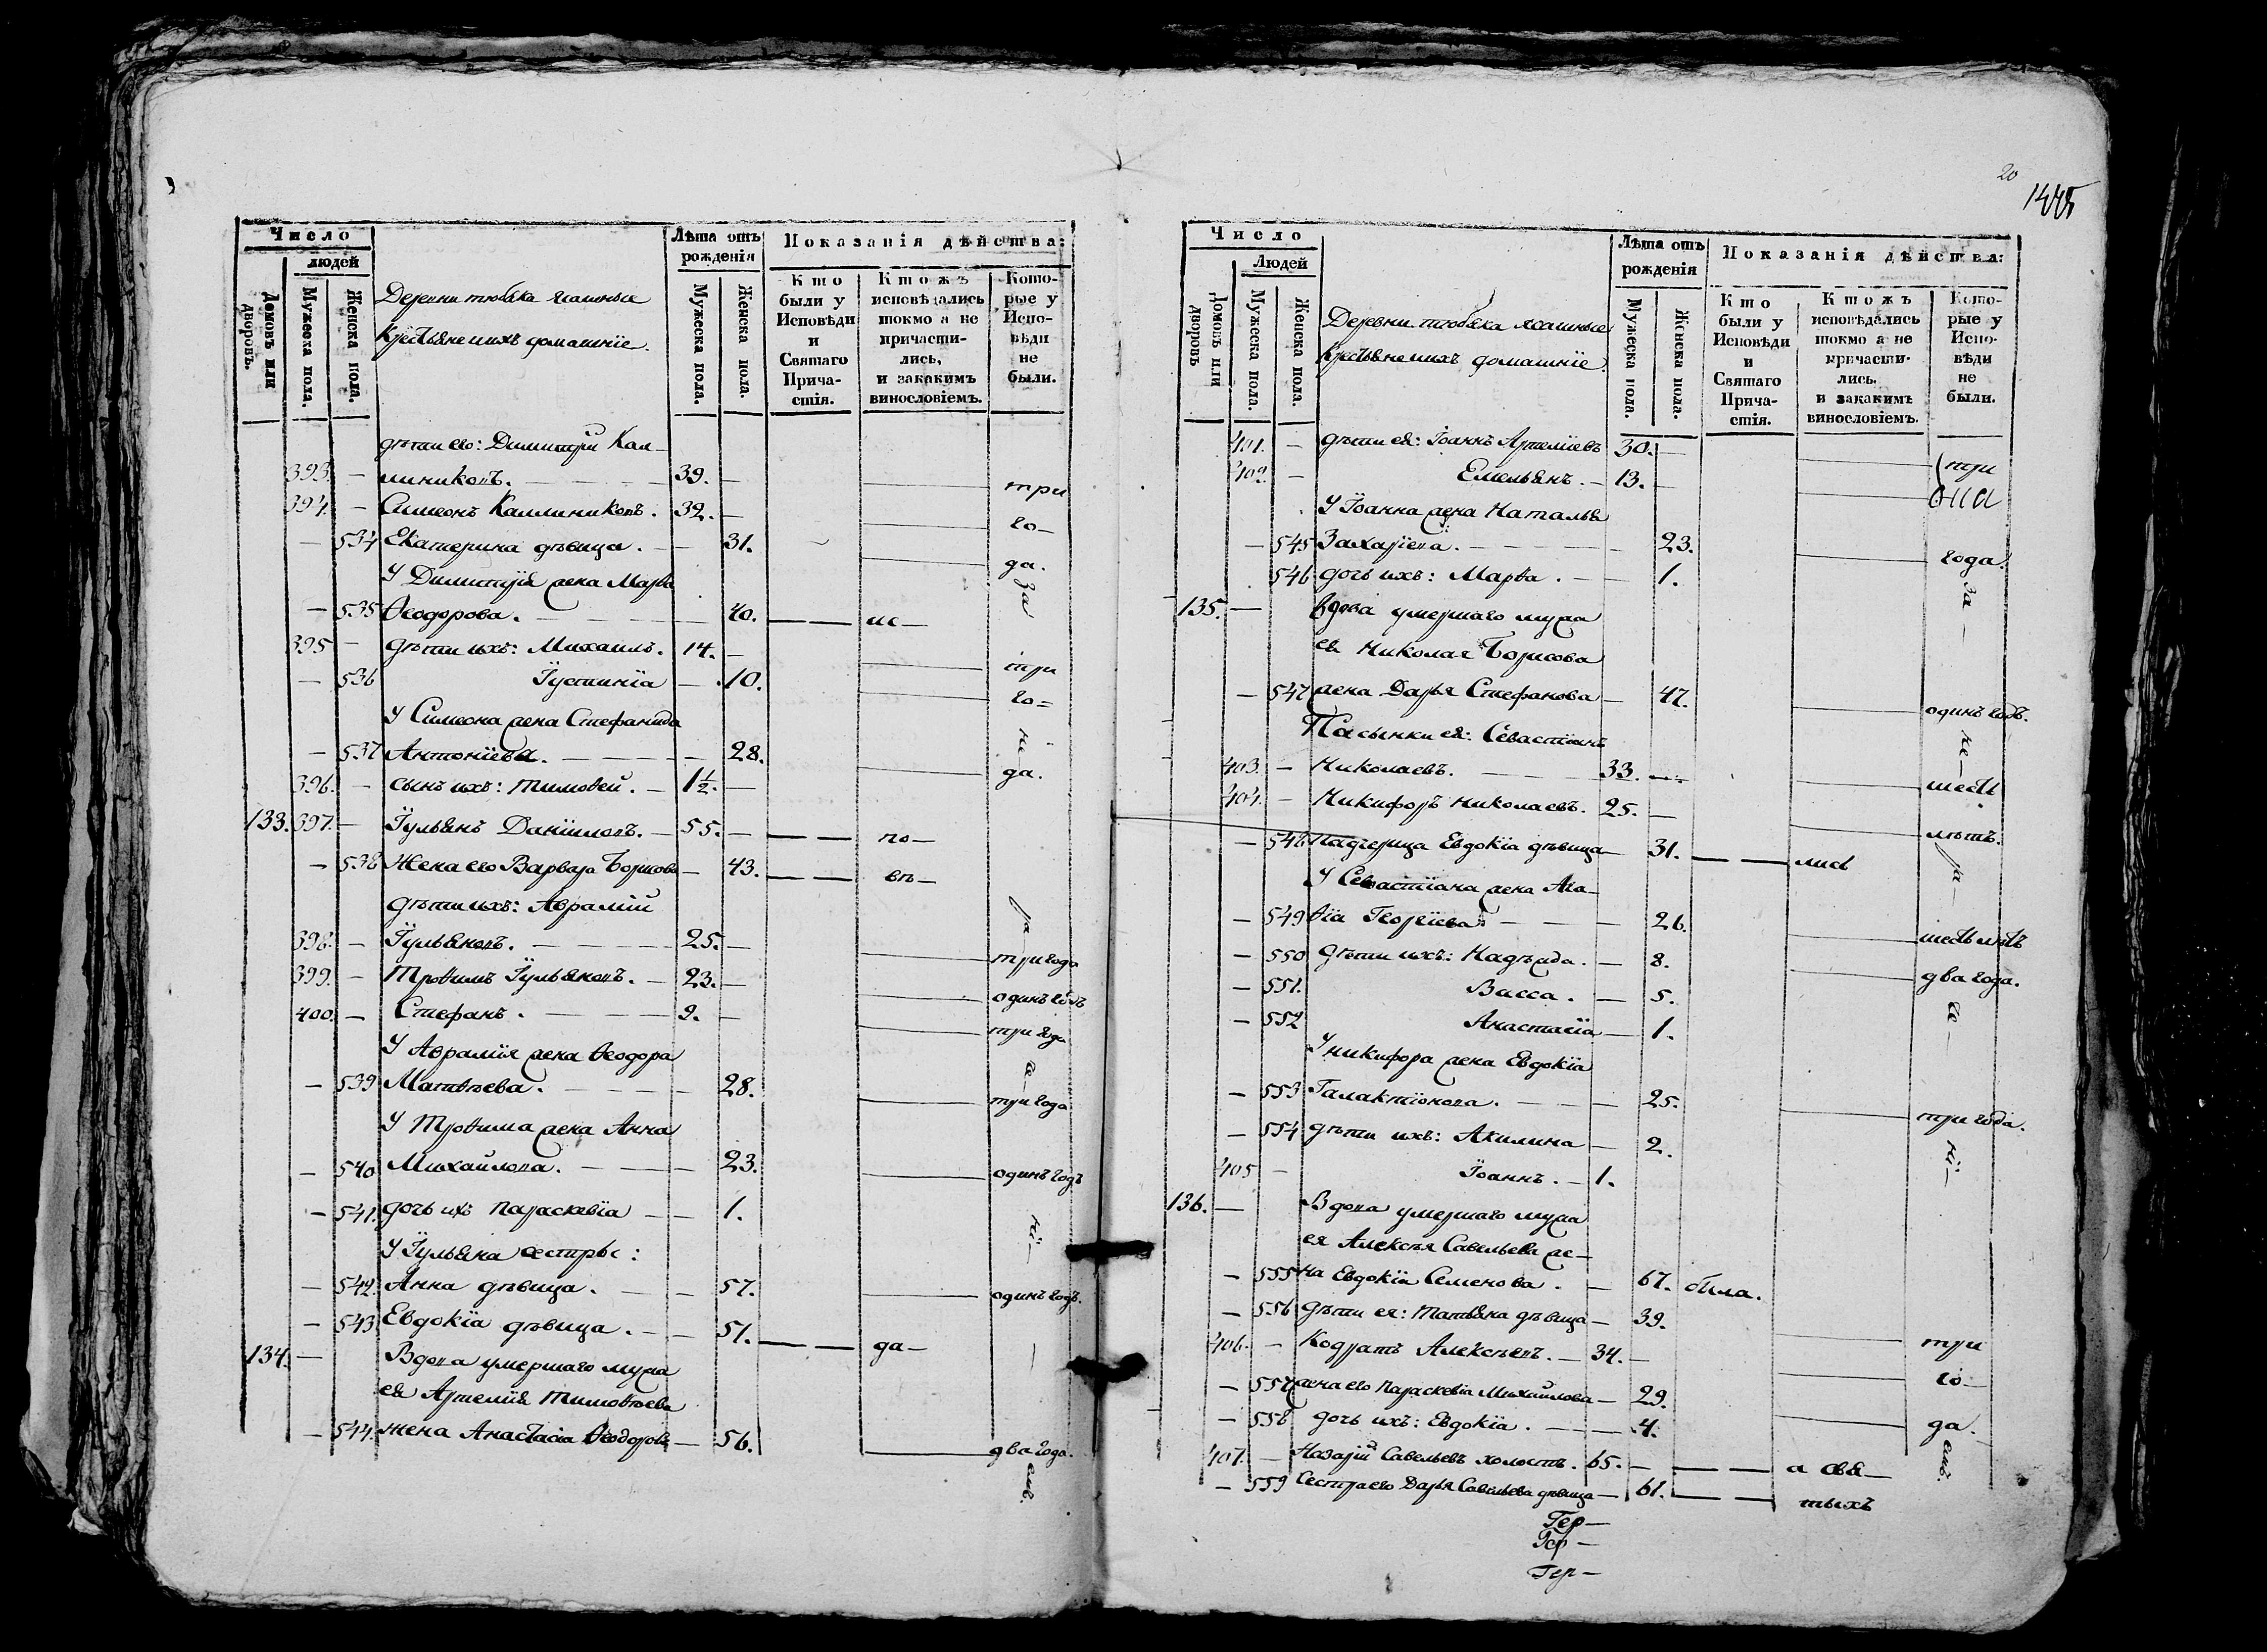 20
1445
Число
людей
Домовъ или дворовъ.
Мужеска пола.
Женска пола.
Деревни тюбяка ясашные
Крестьяне и ихъ домашніе.
Лѣта отъ рожденія
Мужеска пола.
Женска пола.
Показанія дѣйства:
Кто были у Исповѣди и Святаго Причастія.
Ктожъ исповѣдались токмо а не причастились, и закакимъ винословіемъ.
Которые у Исповѣди не были.
дѣти его: Димитрій Кал-
393. — линиковъ. — 39. — три
394. — Симеонъ Каллиниковъ. 32. — го-
— 534 Екатерина дѣвица. — 31. да.
У Димитрія жена Марѳа за
— 535 Ѳеодорова. — 40. — ис-
395 — дѣти ихъ: Михаилъ. 14. — три
— 536 Іустинія — 10. го-
У Симеона жена Стефанида
— 537 Антоніева. — 28. да.
396. — сынъ ихъ: Тимоѳей. — 1½. —
133. 397. — Іульянъ Даніиловъ. — 55. — по-
— 538 Жена его Варвара Борисова — 43. — вѣ-
дѣти ихъ: Аврамій
398. — Іульяновъ. — 25. — три года
399. — Троѳимъ Іульяновъ. — 23. — одинъ годъ
400. — Стефанъ. — 9. — три года
У Аврамія жена Ѳеодора
— 539 Матвѣева. — 28. три года
У Троѳима жена Анна
— 540 Михайлова. — 23. одинъ годъ
— 541. дочь ихъ Параскевіа — 1.
У Іульяна сестры:
— 542. Анна дѣвица. — 57. одинъ годъ.
— 543 Евдокіа дѣвица. — 51. — да-
134. — Вдова умершаго мужа
ея Артемія Тимоѳеева
— 544. жена Анастасіа Ѳеодорова — 56. два года.
Число
Людей
Домовъ или дворовъ
Мужеска пола.
Женска пола.
Деревни тюбяка ясашные
Крестьяне и ихъ домашніе.
Лѣта отъ рожденія
Мужеска пола.
Женска пола.
Показанія дѣйства:
Кто были у Исповѣди и Святаго Причастія.
Ктожъ исповѣдались токмо а не причастились. и закакимъ винословіемъ.
Которые у Исповѣди не были.
401. — дѣти ея: Іоаннъ Артеміевъ 30. — три
402. — Емельянъ. — 13. —
У Іоанна жена Наталья
— 545 Захаріева. — 23. года.
546 дочь ихъ: Марѳа. — 1. за
135. — вдова умершаго мужа
ея Николая Борисова
— 547 жена Дарья Стефанова — 47. одинъ годъ.
Пасынки ея: Севастіанъ не
403. — Николаевъ. — 33. — шесть
404. — Никифоръ Николаевъ. 25. — лѣтъ.
— 548 Падчерица Евдокіа дѣвица — 31. — лись
У Севастіана жена Ага-
— 549 ѳіа Георгіева — 26. шесть лѣтъ
— 550 дѣти ихъ: Надѣжда. — 8. два года.
— 551. Васса. — 5.
— 552 Анастасіа — 1.
У Никифора жена Евдокіа
— 553 Галактіонова. — 25. три года.
— 554 дѣти ихъ: Акилина — 2.
405 — Іоаннъ. — 1.
136. — Вдова умершаго мужа
ея Алексѣя Савельева же-
— 555 на Евдокіа Семенова. — 67. была.
— 556 дѣти ея: Татьяна дѣвица — 39. три
406. — Кодратъ Алексѣевъ. — 34. — го-
— 557 жена его Параскевіа Михайлова — 29. да.
— 558 дочь ихъ: Евдокіа. — 4.
407. — Назарій Савельевъ холостъ. 65. — а свя-
— 559 Сестра его Дарья Савельева дѣвица — 61. — тыхъ
Гер-
Гер-
Гер-